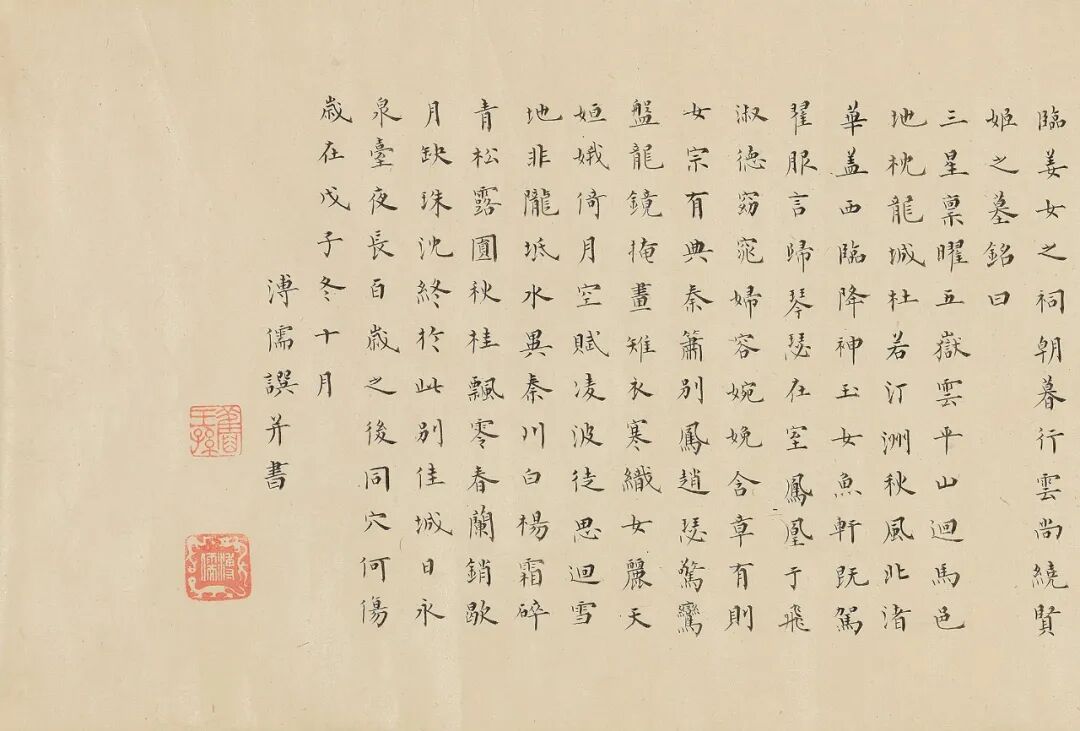 臨姜女之祠朝暮行雲尚繞賢
姬之墓銘曰
三星禀曜五嶽雲平山迴馬邑
地枕龍城杜若汀洲秋風北渚
華蓋西臨降神玉女魚軒既駕
翟服言歸琴瑟在室鳳凰于飛
淑德窈窕婦容婉娩含章有則
女宗有典秦簫別鳳趙瑟驚鸞
盤龍鏡掩畫雉衣寒織女麗天
姮娥倚月空賦凌波徒思迴雪
地非隴坻水異秦川白楊霜碎
青松露圓秋桂飄零春蘭銷歇
月缺珠沈終於此別佳城日永
泉臺夜長百歲之後同穴何傷
歲在戊子冬十月
溥儒譔并書
舊王孫
溥儒